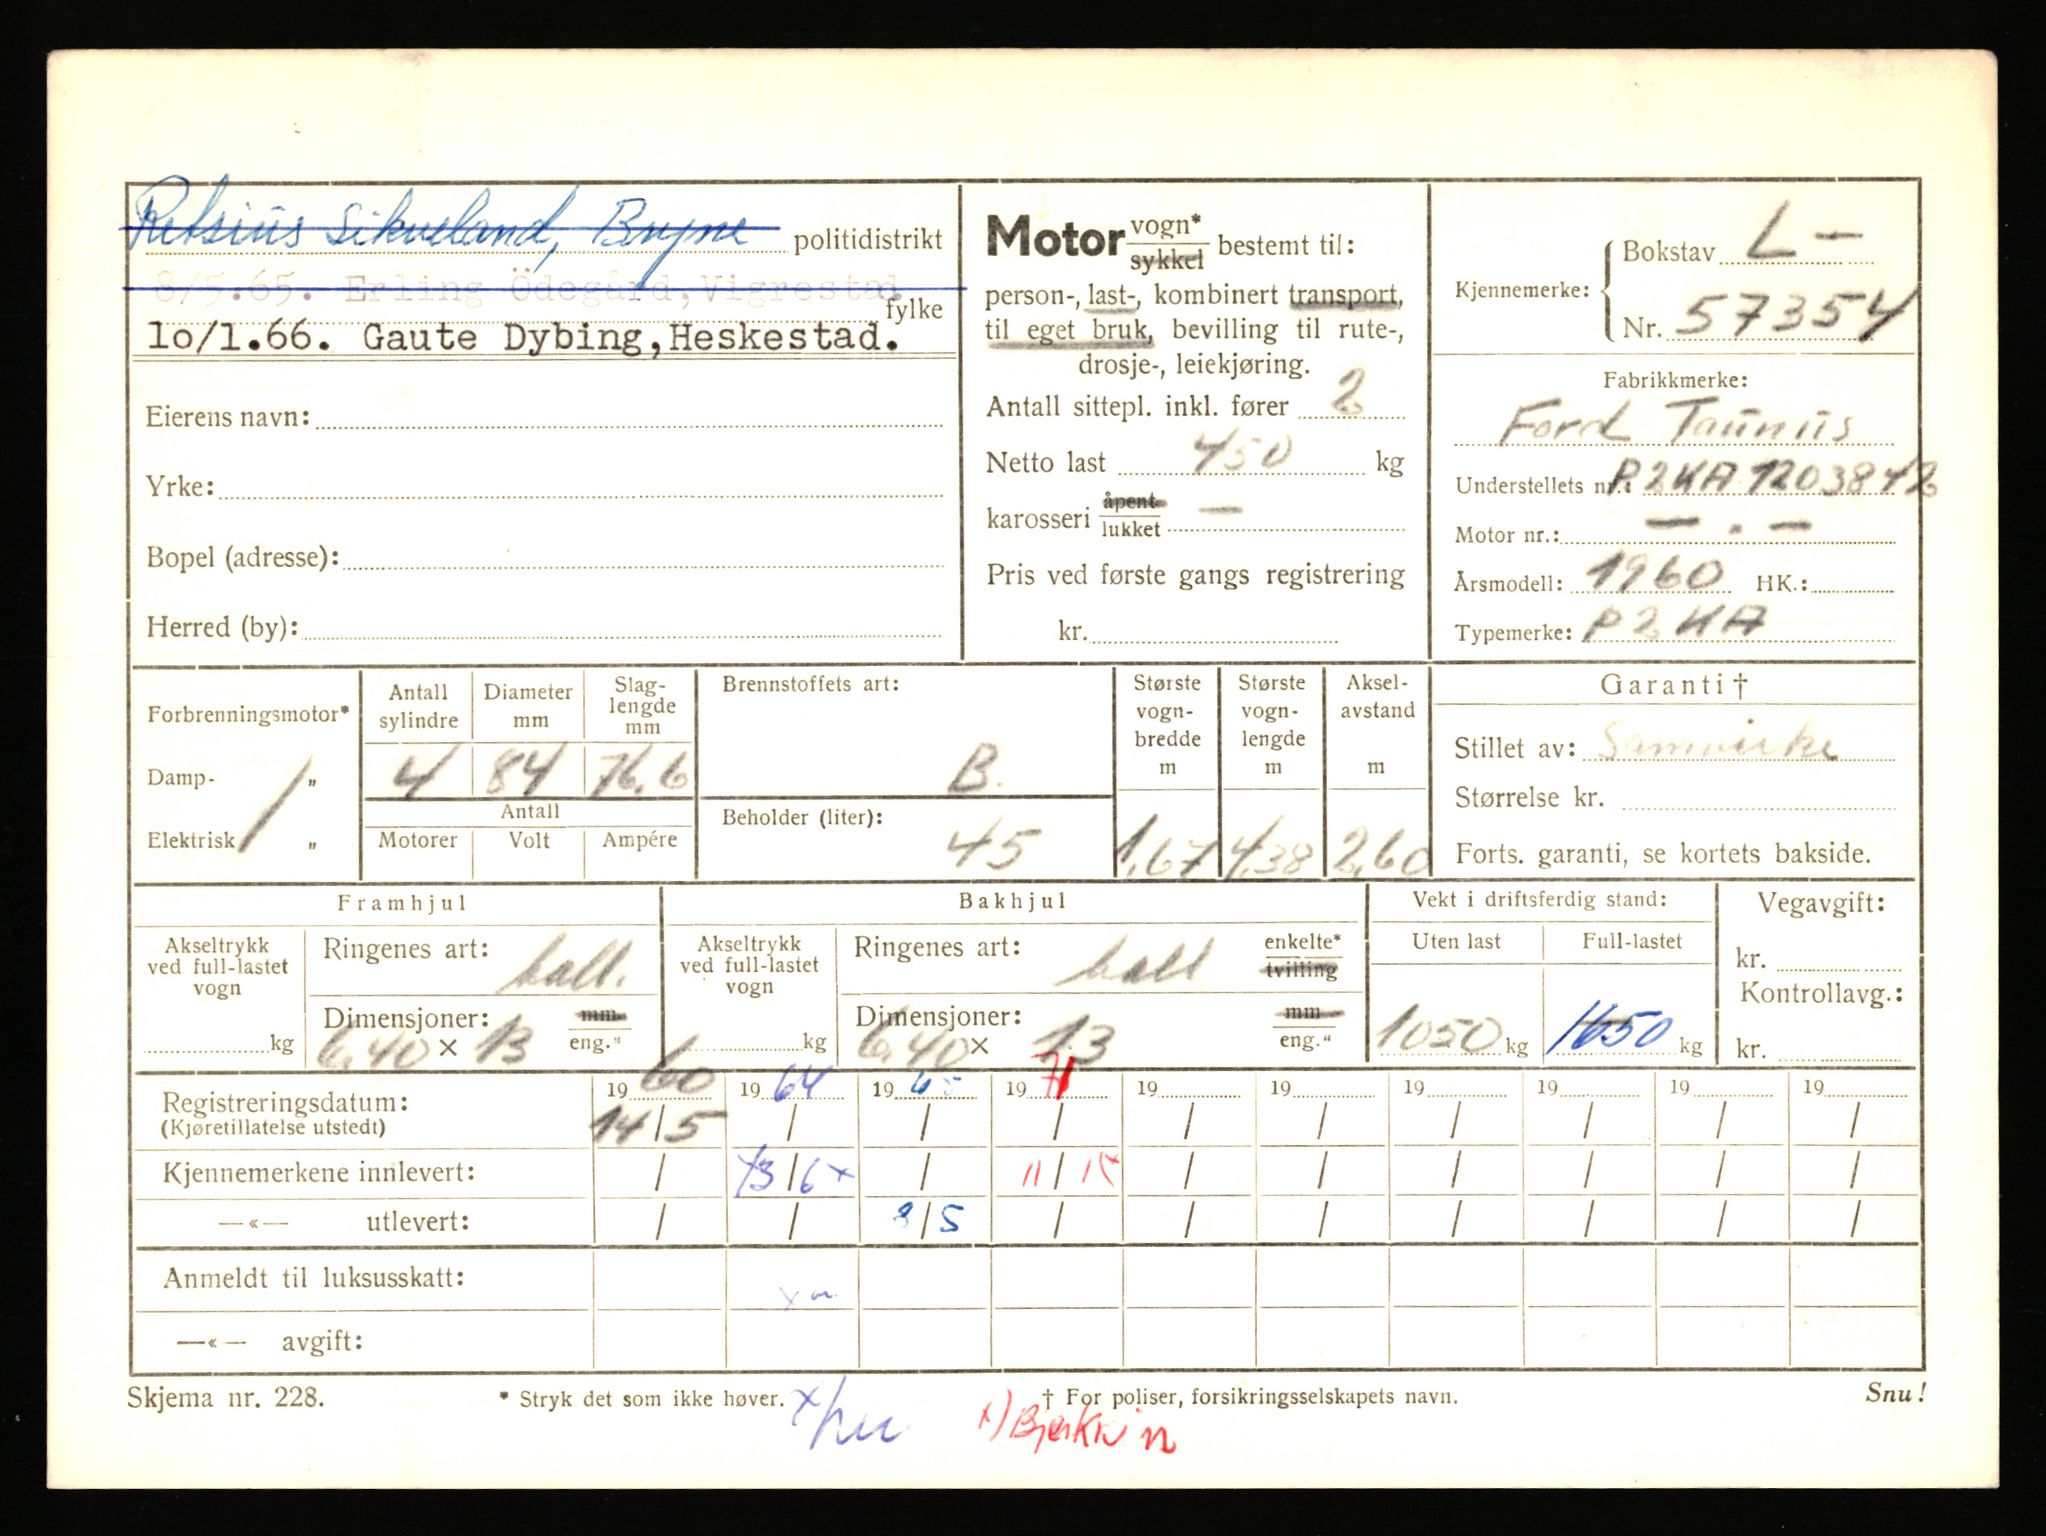 Retsius Sikveland, Bryne politidistrikt
8/5.65. Erling Ödegård, Vigrestad
fylke
1o/1.66. Gaute Dybing, Heskestad.
Eierens navn:
Yrke:
Bopel (adresse):
Herred (by):
Motor vogn* sykkel bestemt til:
person-, last-, kombinert transport,
til eget bruk, bevilling til rute-,
drosje-, leiekjøring.
Antall sittepl. inkl. fører 2
Netto last 450 kg
karosseri åpent lukket —
Pris ved første gangs registrering
kr.
Kjennemerke: Bokstav L —
Nr. 57354
Fabrikkmerke:
Ford Taunus
Understellets nr.: P2KA 1203842
Motor nr.: — . —
Årsmodell: 1960 HK.:
Typemerke: P2KA
Forbrenningsmotor*
Damp- „
Elektrisk „
Antall sylindre
4
Diameter mm
84
Slaglengde mm
76,6
Antall
Motorer Volt Ampére
Brennstoffets art:
B.
Beholder (liter):
45
Største vognbredde m
1,67
Største vognlengde m
4,38
Akselavstand m
2,60
Garanti †
Stillet av: Samvirke
Størrelse kr.
Forts. garanti, se kortets bakside.
Framhjul
Akseltrykk ved full-lastet vogn
kg
Ringenes art: ball.
Dimensjoner: mm eng."
6,40 × 13
Bakhjul
Akseltrykk ved full-lastet vogn
kg
Ringenes art: ball enkelte* tvilling
Dimensjoner: mm eng."
6,40 × 13
Vekt i driftsferdig stand:
Uten last Full-lastet
1050 kg 1650 kg
Vegavgift:
kr.
Kontrollavg.:
kr.
Registreringsdatum: 1960 1964 1965 1971 19 19 19 19 19 19
(Kjøretillatelse utstedt) 14/5 / / / / / / / / /
Kjennemerkene innlevert: / 13/6 x / 11/ / / / / / /
—«— utlevert: / / 8/5 / / / / / / /
Anmeldt til luksusskatt:
—«— avgift:
Skjema nr. 228. * Stryk det som ikke høver. † For poliser, forsikringsselskapets navn. Snu!
x)